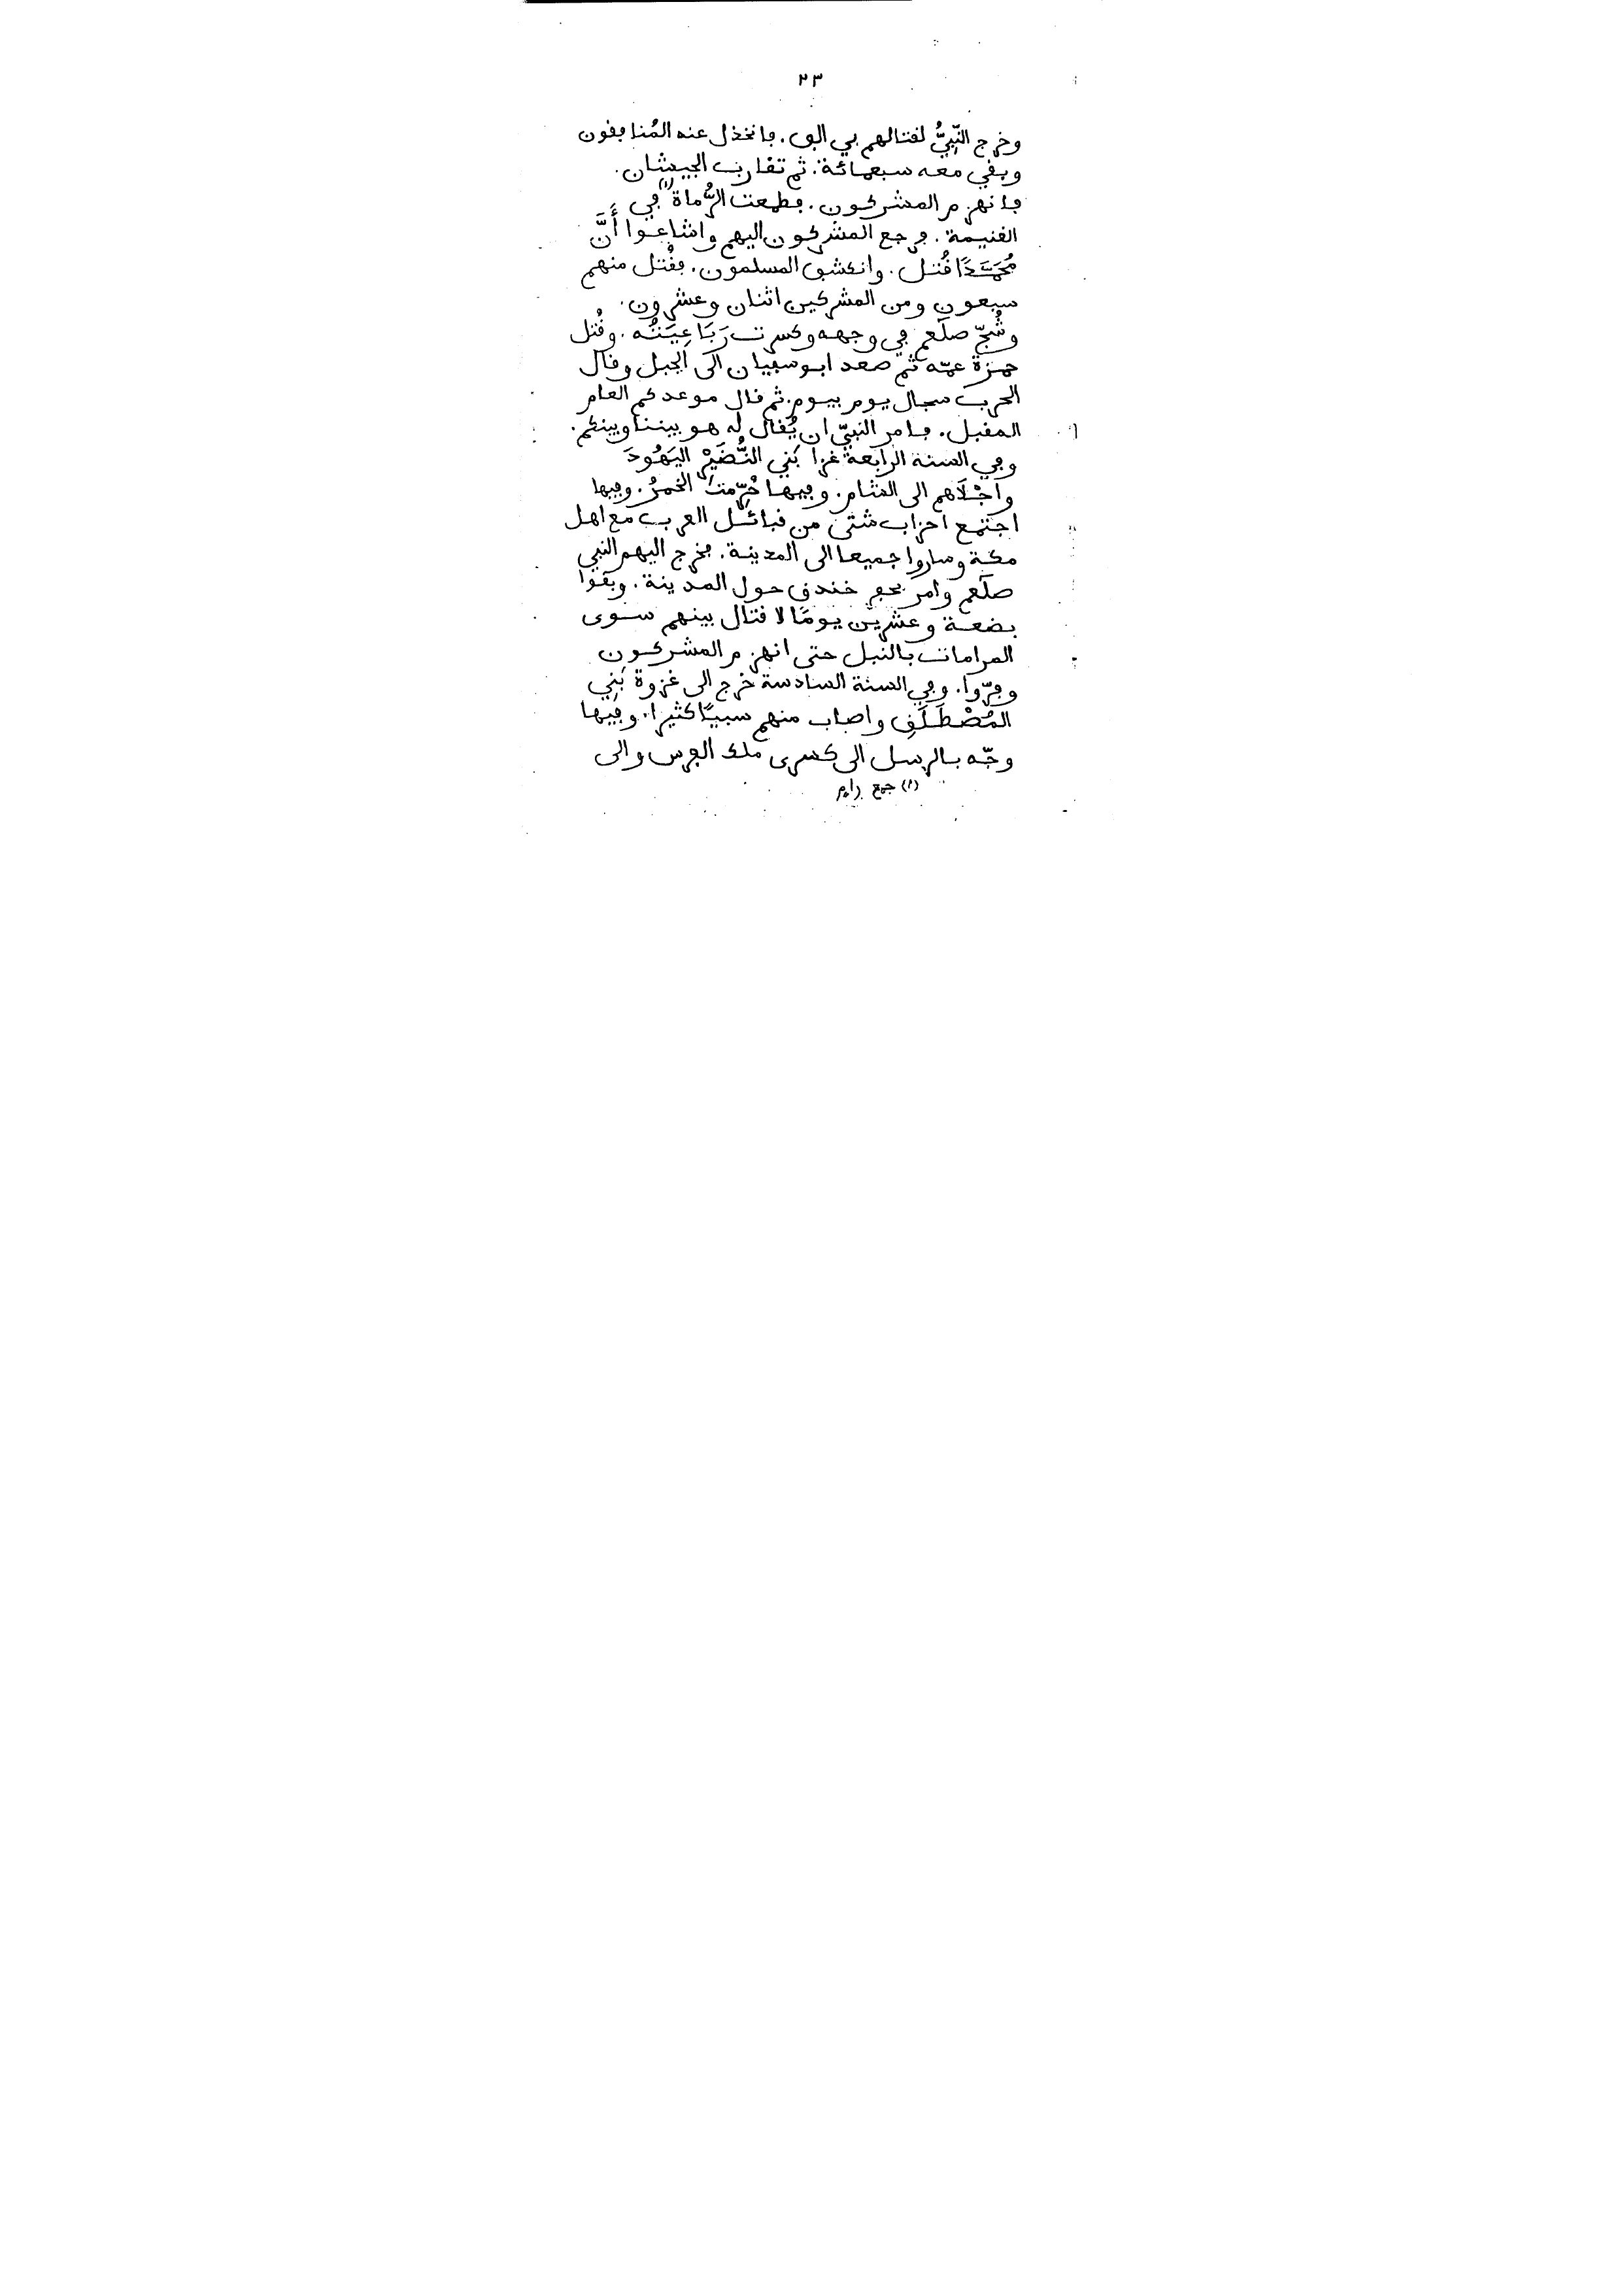 ٢٣
وخرج النَّبِيُّ لقتالهم في الف. فانخذل عنه المُنافقون
وبقي معه سبعمائة. ثم تقارب الجيشان.
فانهزم المشركون. فطمعت الرُّماة (١) في
الغنيمة. فرجع المشركون اليهم واشاعوا أَنَّ
مُحَمَّدًا قُتل. وانكشف المسلمون. فقُتل منهم
سبعون ومن المشركين اثنان وعشرون.
وشُجّ صلعم في وجهه وكسرت رَبَاعِيَتُه. وقُتل
حمزة عمّه ثمّ صعد ابو سفيان الى الجبل وقال
الحرب سجال يوم بيوم. ثم قال موعدكم العام
المقبل. فامر النبيّ ان يُقال له هو بيننا وبينكم.
وفي السنة الرابعة غزا بَني النُّضَيْر اليَهُودَ
واجْلَاهم الى الشام. وفيها حُرِّمت الخمرُ. وفيها
اجتمع احزاب شتى من قبائل العرب مع اهل
مكة وساروا جميعا الى المدينة. فخرج اليهم النبي
صلعم وامر بحفر خندق حول المدينة. وبقوا
بضعة وعشرين يومًا لا قتال بينهم سوى
المرامات بالنبل حتى انهزم المشركون
وفرّوا. وفي السنة السادسة خرج الى غزوة بَنِي
المُصْطَلَقِ واصاب منهم سبيًا كثيرا. وفيها
وجّه بالرسل الى كسرى ملك الفرس والى
(١) جمع رامٍ